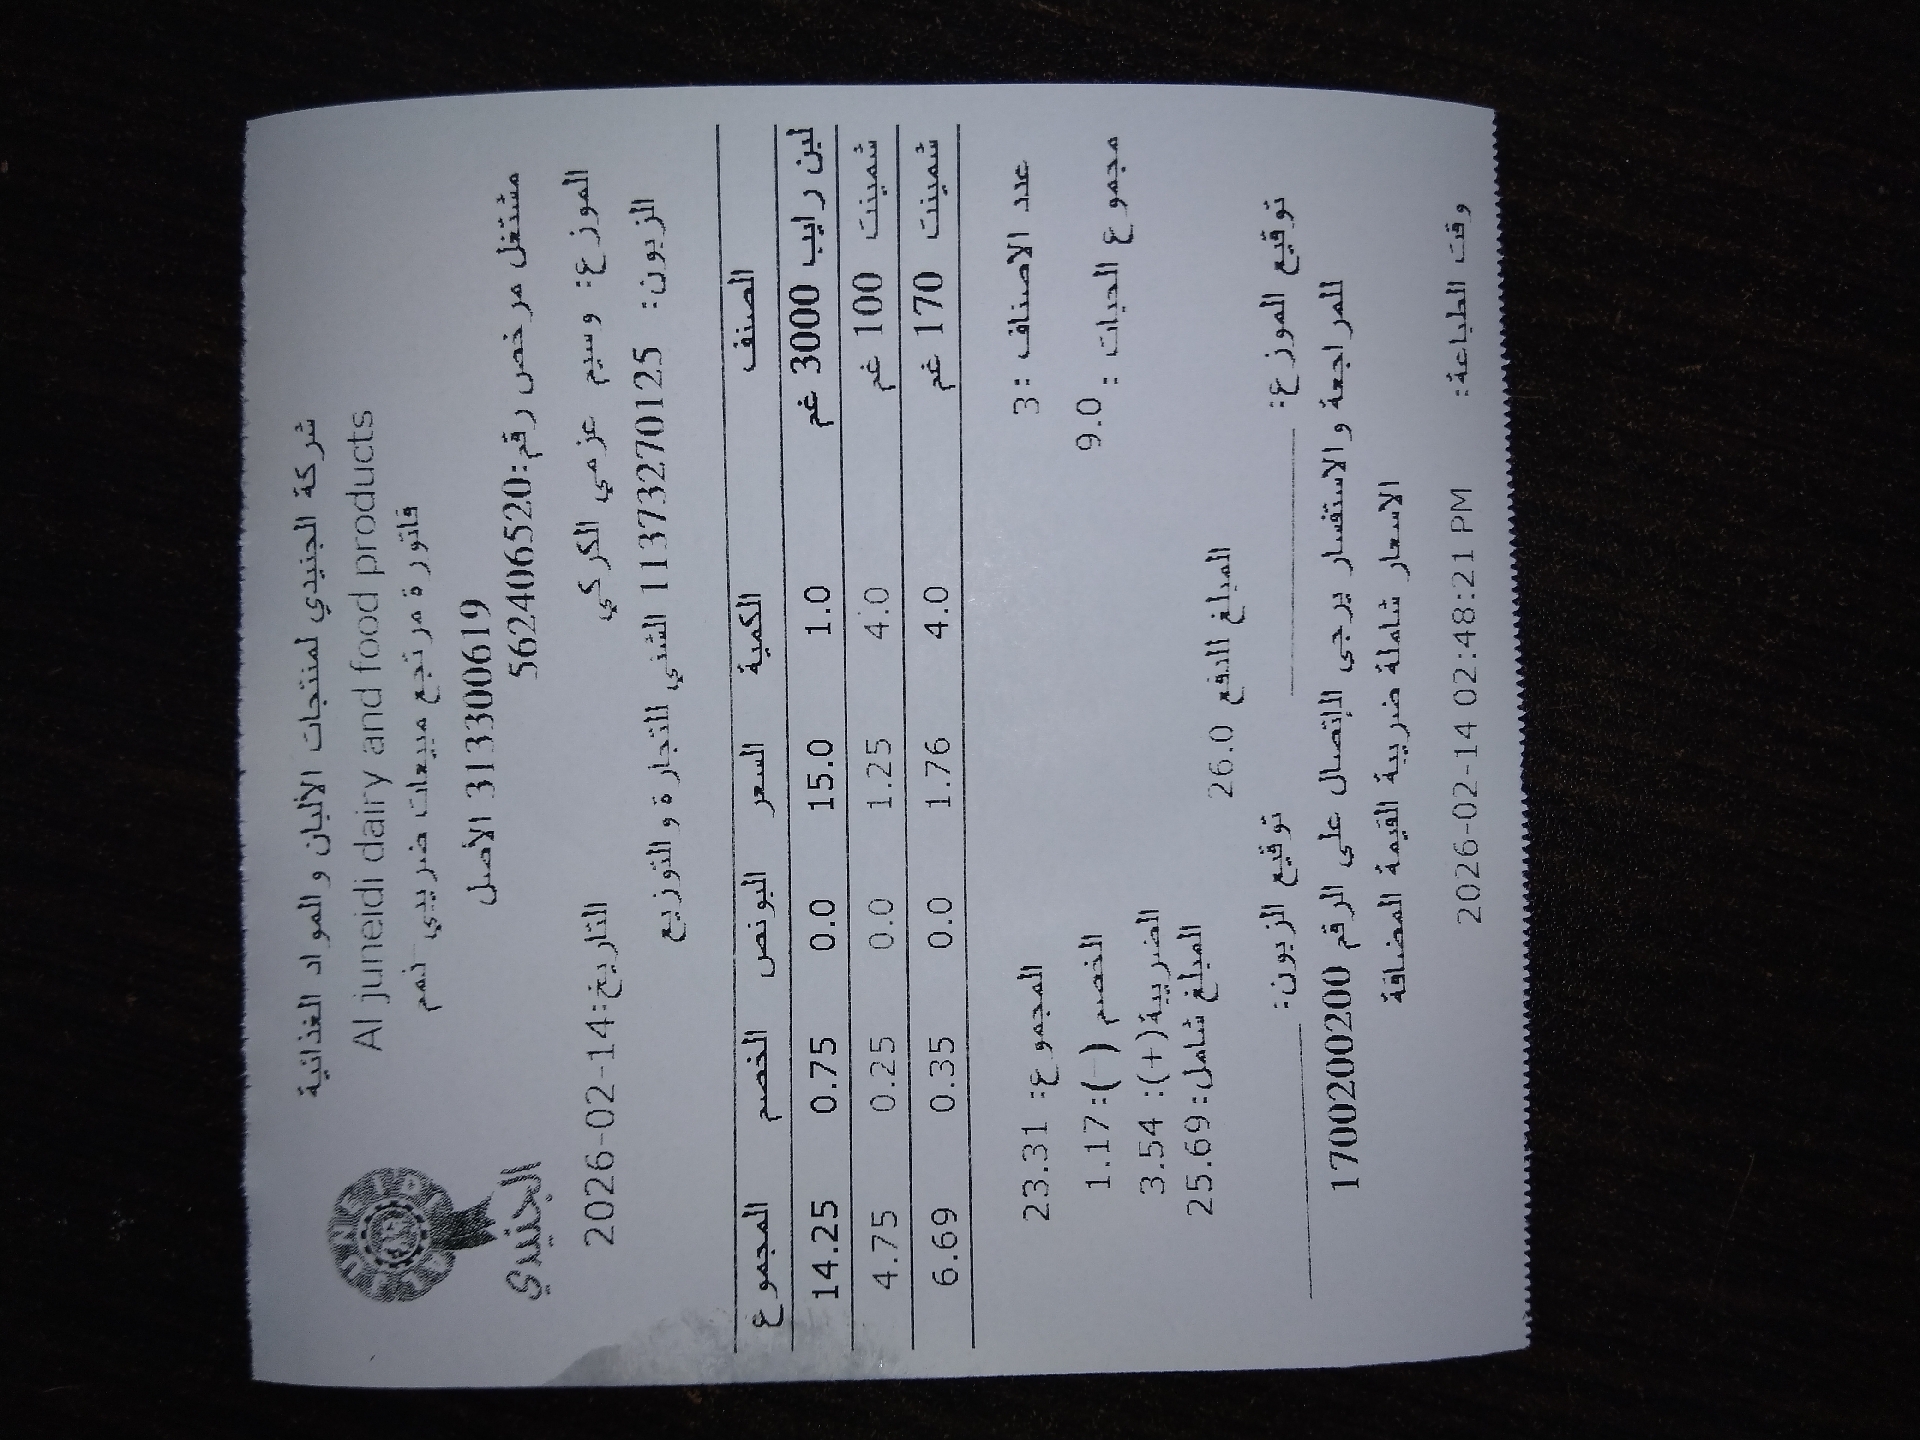 شركة الجنيدي لمنتجات الألبان والمواد الغذائية
Al juneidi dairy and food products
فاتورة مرتجع مبيعات ضريبي ذمم
313300619 الأصل
مشتغل مرخص رقم:562406520
الجنيدي
الموزع: وسيم عزمي الكركي
التاريخ:2026-02-14
الزبون: 11373270125 الشني للتجارة والتوزيع
الصنف الكمية السعر البونص الخصم المجموع
لبن رايب 3000 غم 1.0 15.0 0.0 0.75 14.25
شمينت 100 غم 4.0 1.25 0.0 0.25 4.75
شمينت 170 غم 4.0 1.76 0.0 0.35 6.69
عدد الاصناف :3
المجموع: 23.31
مجموع الحبات : 9.0
الخصم (-):1.17
الضريبة(+): 3.54
المبلغ شامل:25.69
المبلغ للدفع 26.0
توقيع الموزع:
توقيع الزبون:
للمراجعة والاستفسار يرجى الإتصال على الرقم 1700200200
الاسعار شاملة ضريبة القيمة المضافة
وقت الطباعة: 2026-02-14 02:48:21 PM